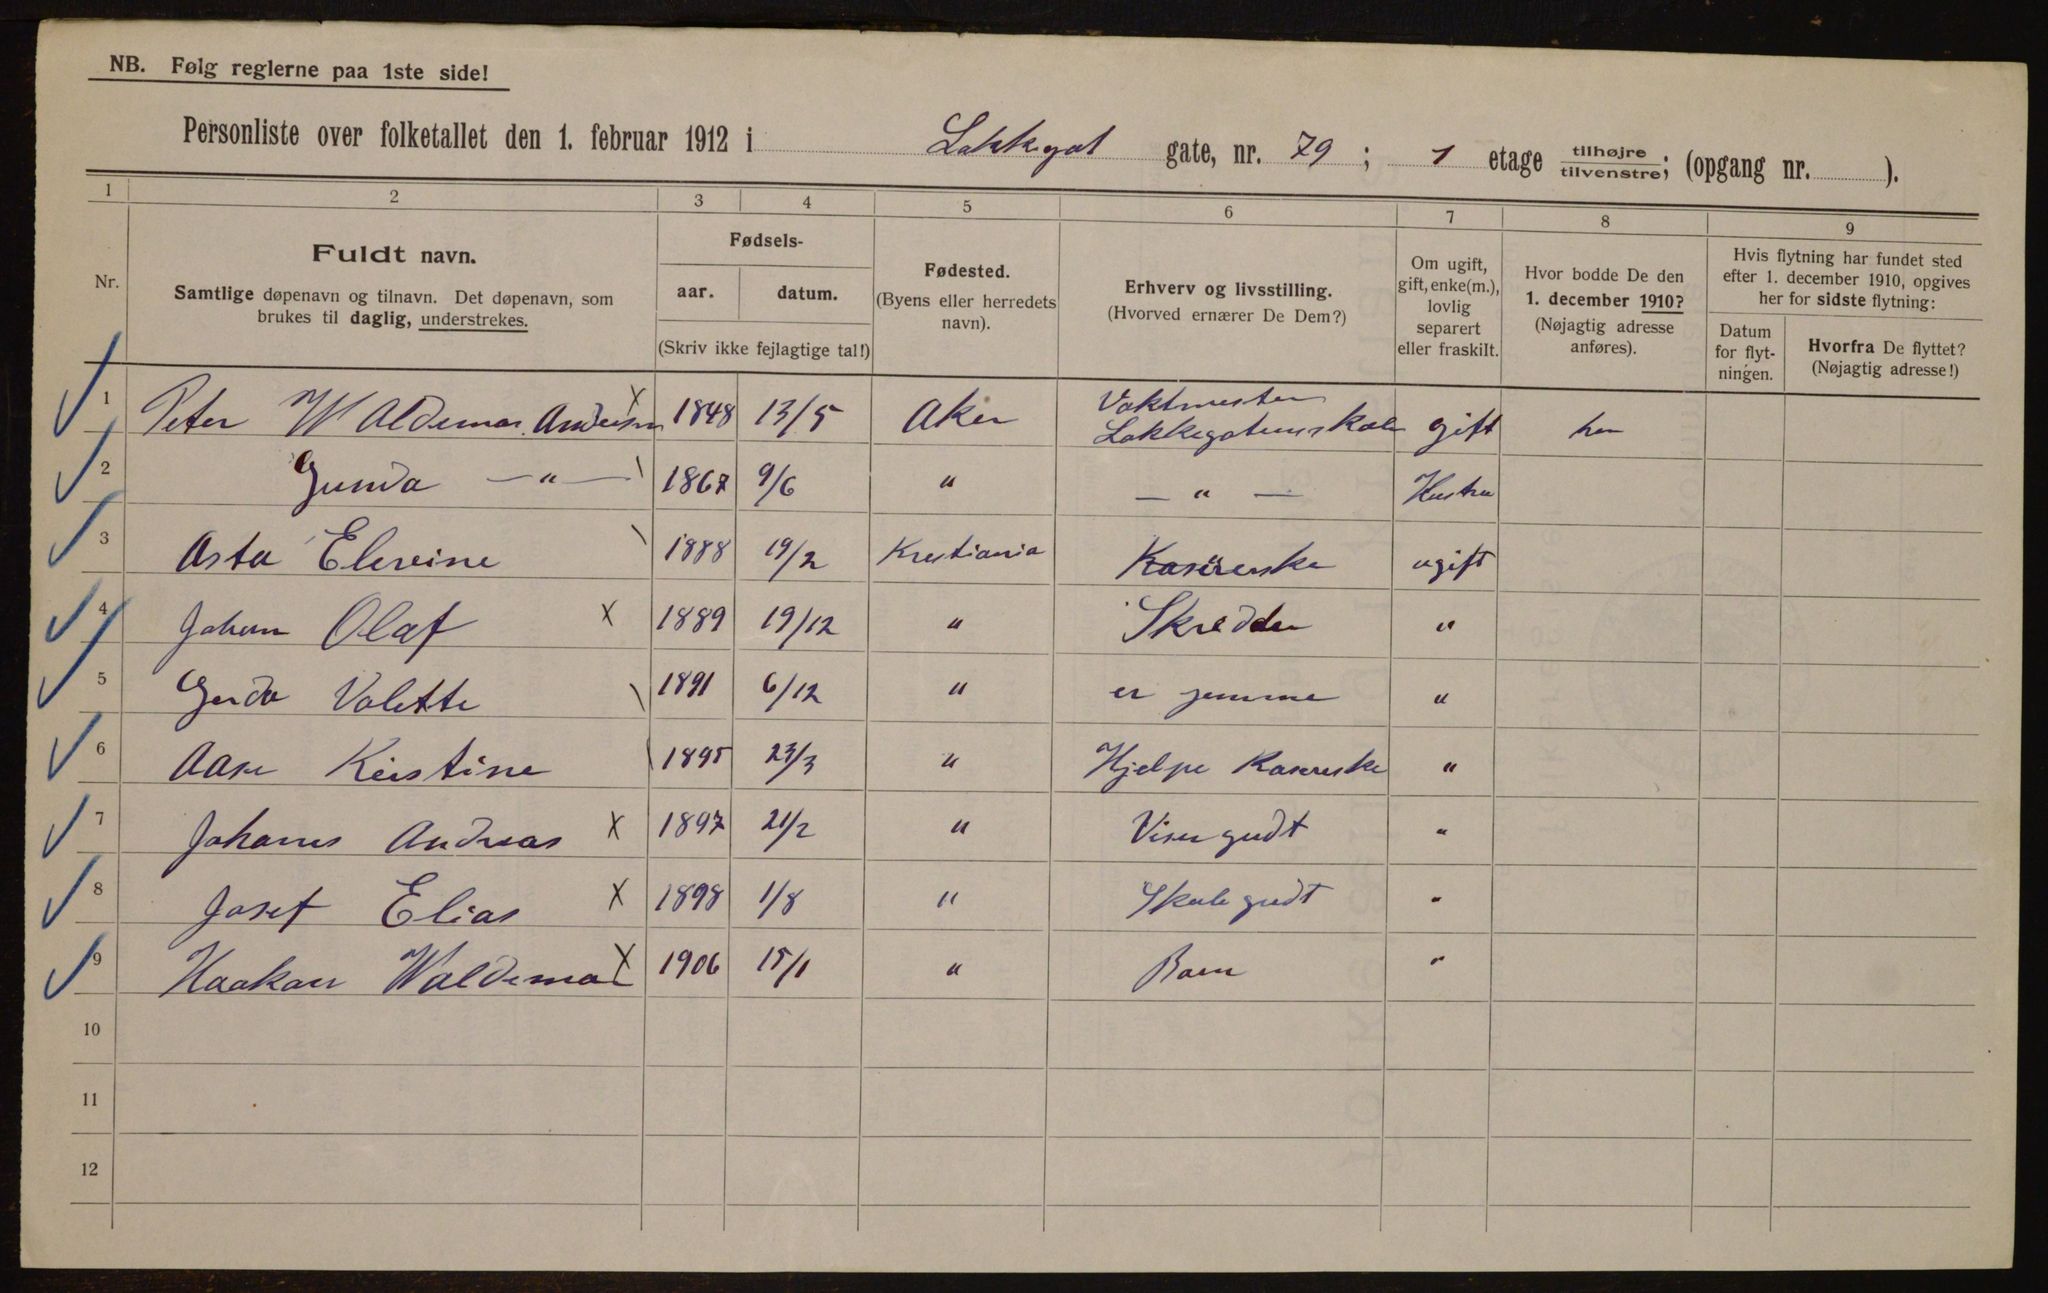 NB. Følg reglerne paa 1ste side!
Personliste over folketallet den 1. februar 1912 i Lakkegat gate, nr. 79; 1 etage tilhøjre tilvenstre; (opgang nr. ).
1 2 3 4 5 6 7 8 9
Nr.
Fuldt navn.
Samtlige døpenavn og tilnavn. Det døpenavn, som
brukes til daglig, understrekes.
Fødsels-
aar. datum.
(Skriv ikke fejlagtige tal!)
Fødested.
(Byens eller herredets
navn).
Erhverv og livsstilling.
(Hvorved ernærer De Dem?)
Om ugift,
gift, enke(m.),
lovlig
separert
eller fraskilt.
Hvor bodde De den
1. december 1910?
(Nøjagtig adresse
anføres).
Hvis flytning har fundet sted
efter 1. december 1910, opgives
her for sidste flytning:
Datum
for flyt-
ningen.
Hvorfra De flyttet?
(Nøjagtig adresse!)
1 Peter Waldemar Andersen X 1848 13/5 Aker Vaktmester Lakkegatens skole gift her
2 Gunda — " — \ 1867 9/6 " — " — Hustru
3 Asta Elevine \ 1888 19/2 Krestiania Kasererske ugift
4 Johan Olaf X 1889 19/12 " Skredder "
5 Gerda Valette \ 1891 6/12 " er jemme "
6 Aase Keistine \ 1895 23/3 " Hjelpe Kasereske "
7 Johanes Andreas X 1897 21/2 " Viser gudt "
8 Josef Elias X 1898 1/8 " Skole gudt "
9 Haakon Waldemar X 1906 15/1 " Barn "
10
11
12